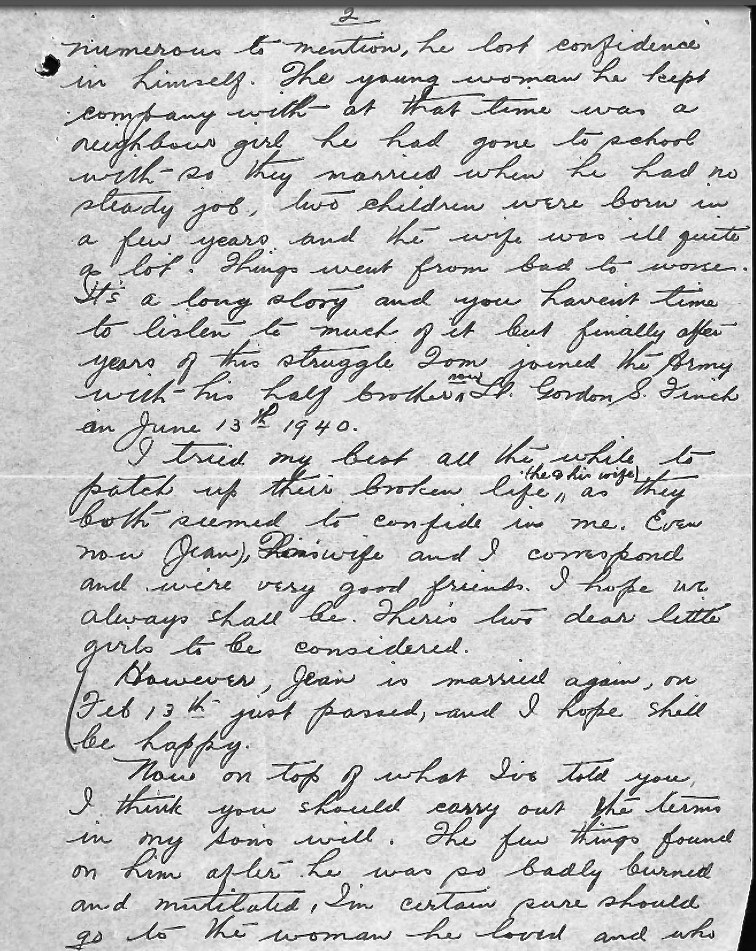 2
numerous to mention, he lost confidence
in himself. The young woman he kept
company with at that time was a
neighbour girl he had gone to school
with so they married when he had no
steady job, two children were born in
a few years and the wife was ill quite
a lot. Things went from bad to worse.
It's a long story and you haven't time
to listen to much of it but finally after
years of this struggle Tom joined the Army
with his half brother now Lt. Gordon S. Finch
on June 13th 1940.
I tried my best all the while to
patch up their broken life, (he & his wife) as they
both seemed to confide in me. Even
now (Jean), wife and I correspond
and we're very good friends. I hope we
always shall be. There's two dear little
girls to be considered.
However, Jean is married again, on
Feb 13th just passed, and I hope shell
be happy.
Now on top of what I've told you,
I think you should carry out the terms
in my sons will. The few things found
on him after he was so badly burned
and mutilated, I'm certain sure should
go to the woman he loved and who